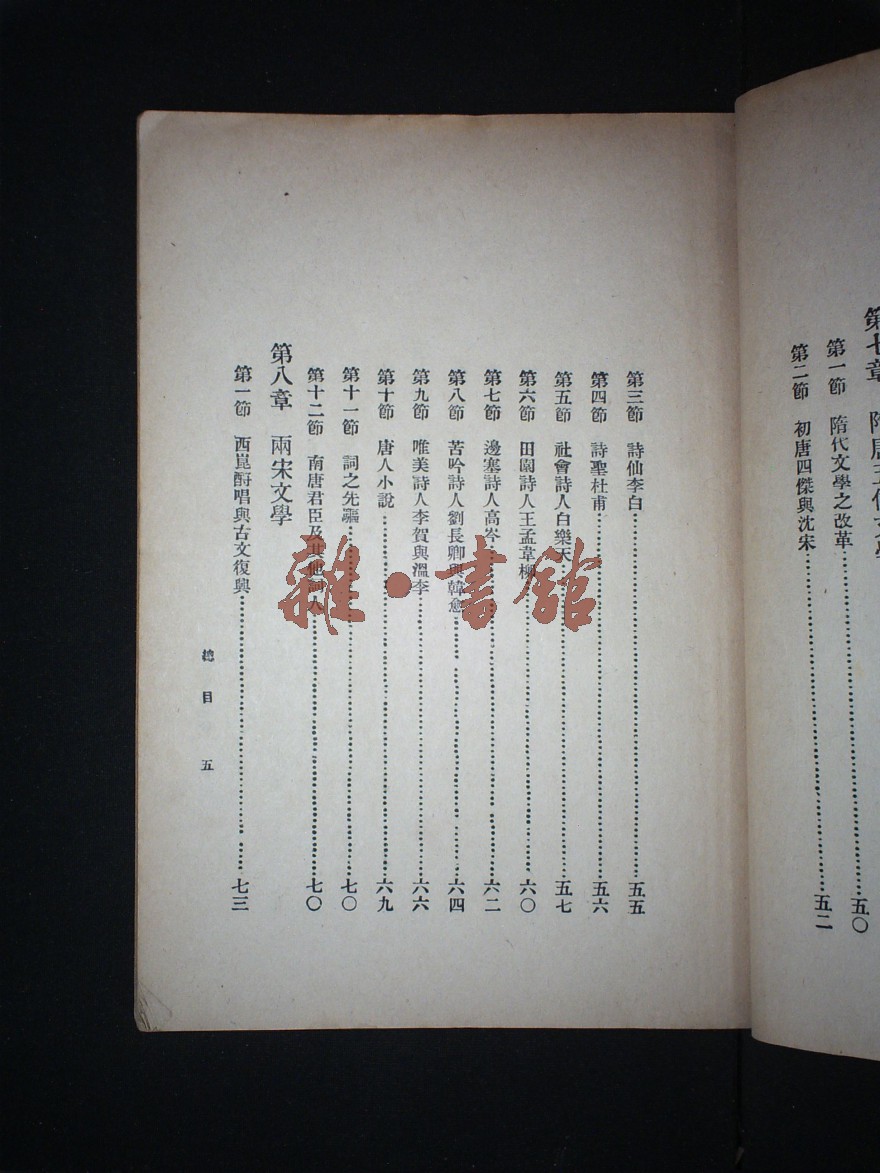 第七章 隋唐五代文學
第一節 隋代文學之改革……五〇
第二節 初唐四傑與沈宋……五二
第三節 詩仙李白……五五
第四節 詩聖杜甫……五六
第五節 社會詩人白樂天……五七
第六節 田園詩人王孟韋柳……六〇
第七節 邊塞詩人高岑……六二
第八節 苦吟詩人劉長卿與韓愈……六四
第九節 唯美詩人李賀與溫李……六六
第十節 唐人小說……六九
第十一節 詞之先驅……七〇
第十二節 南唐君臣及其他詞人……七〇
第八章 兩宋文學
第一節 西崑酬唱與古文復興……七三
總目 五
雜·書館